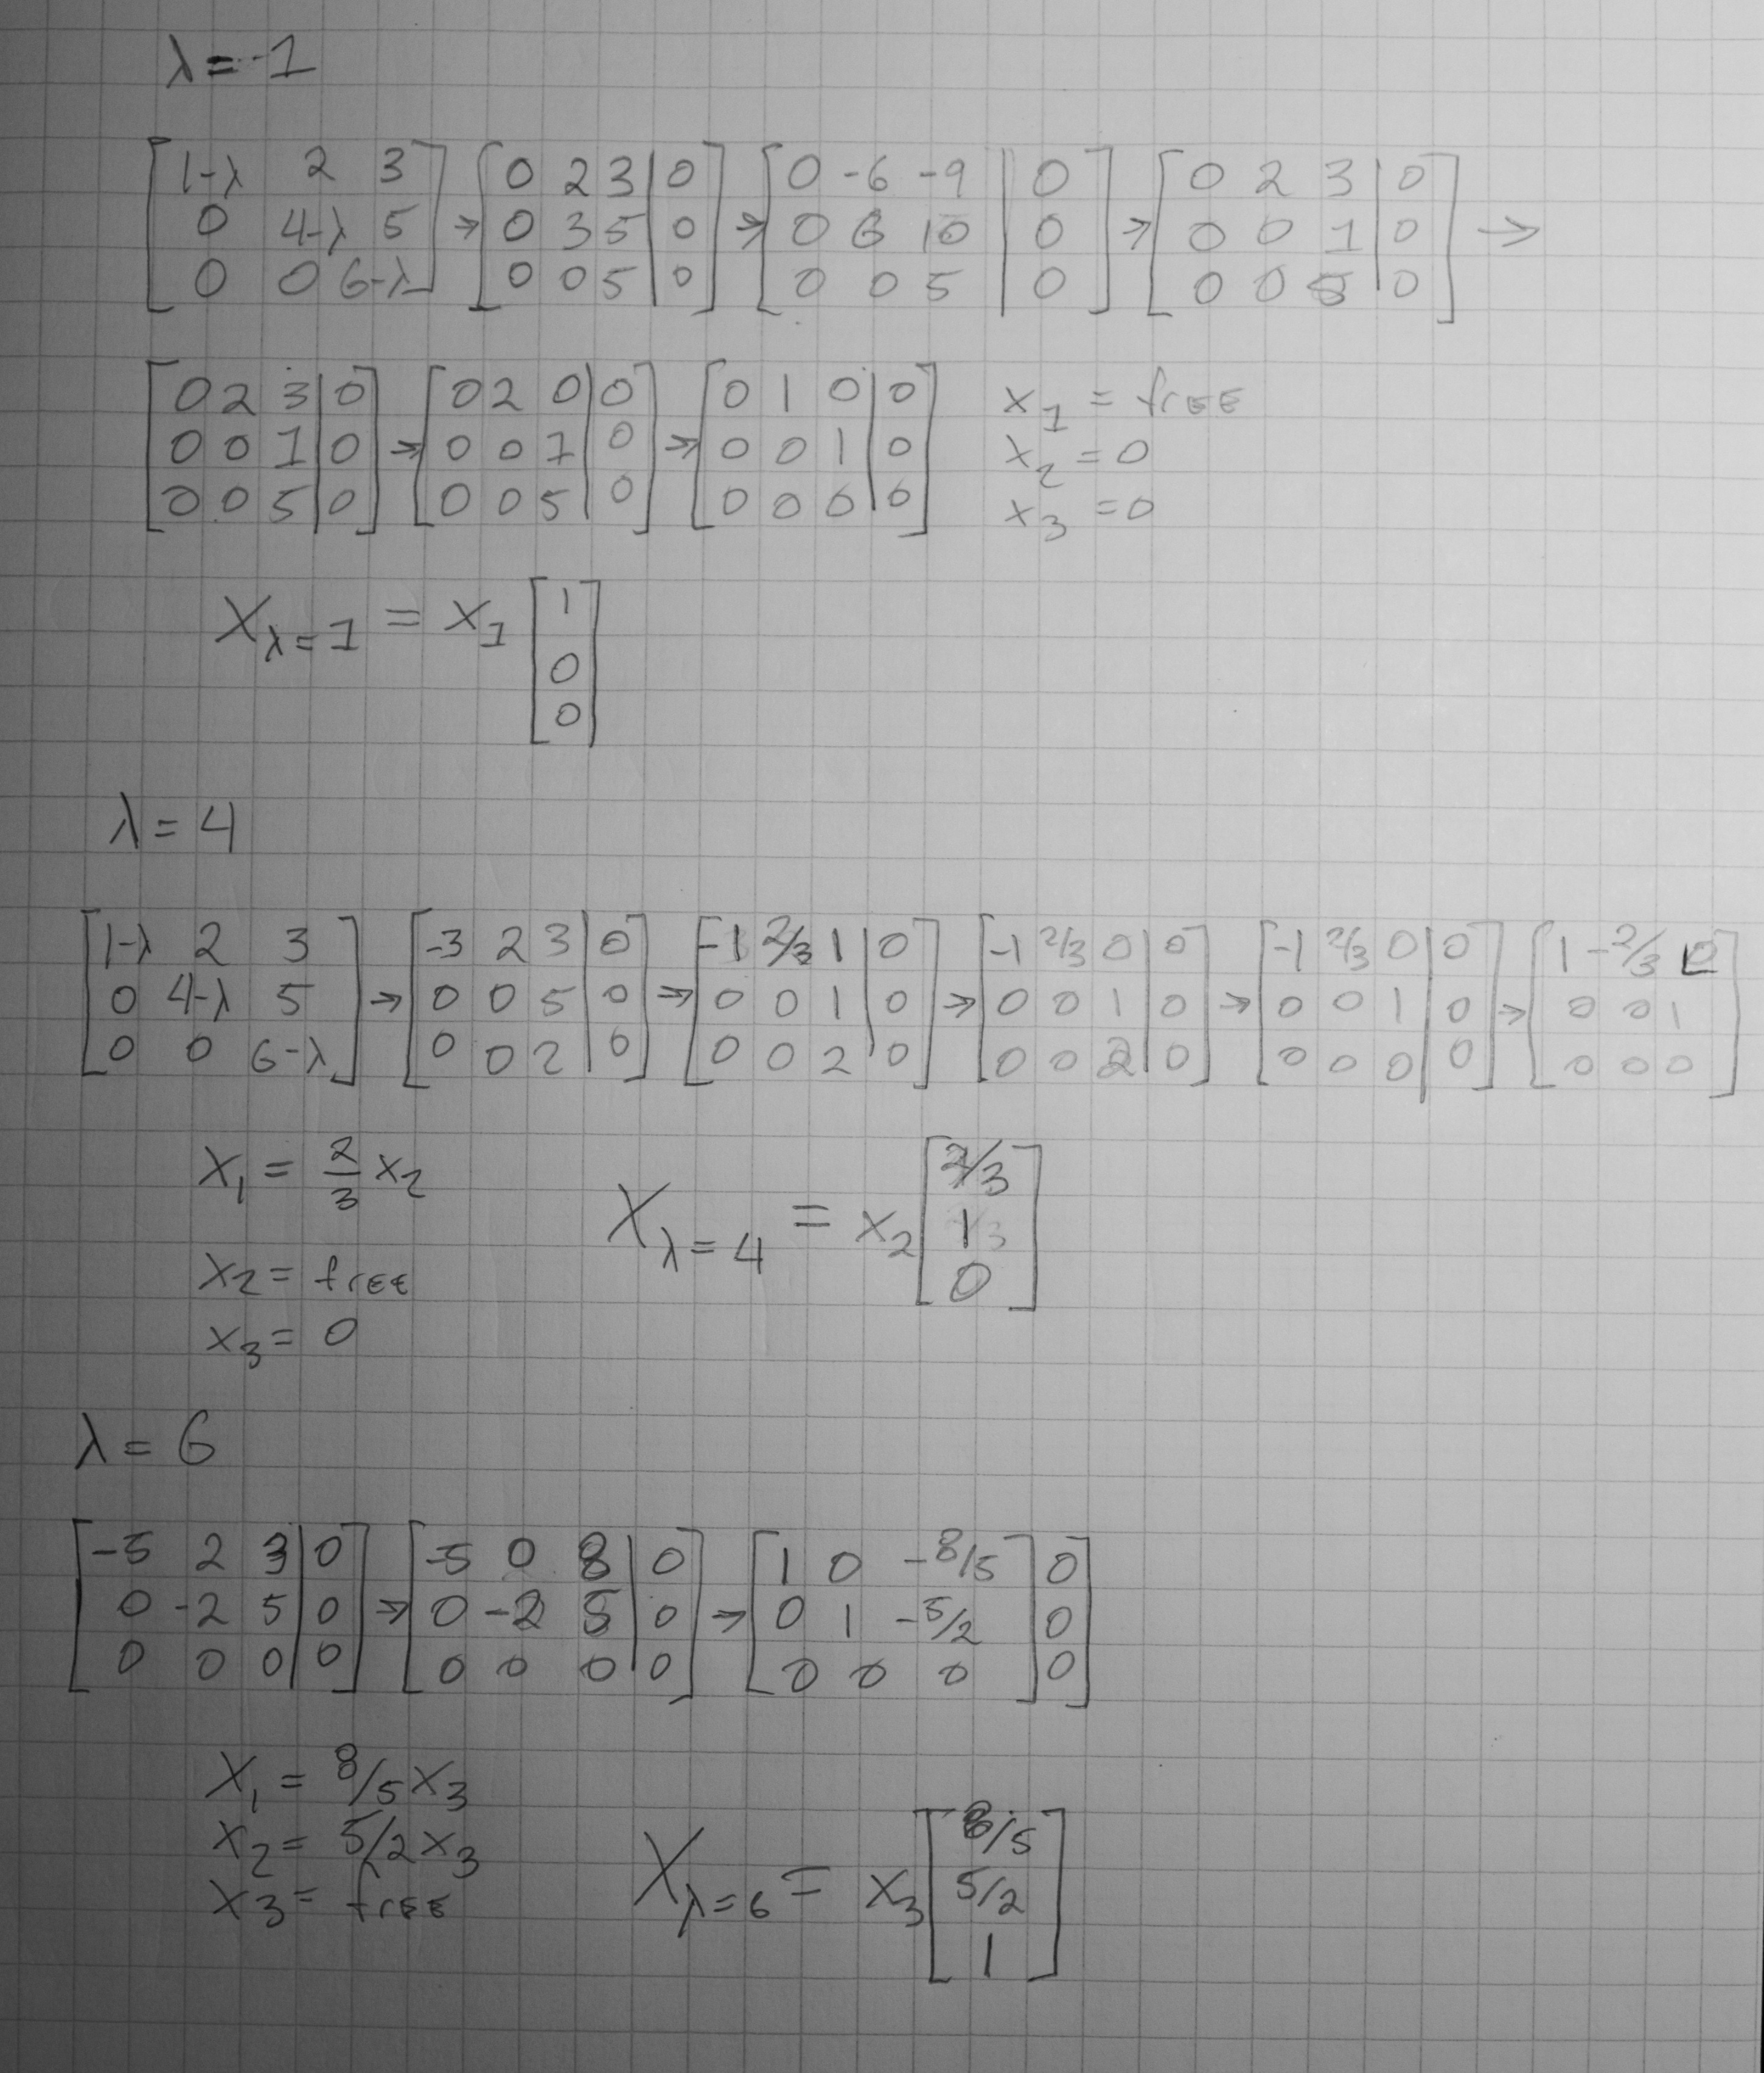 λ = -1
[1-λ 2 3; 0 4-λ 5; 0 0 6-λ] → [0 2 3 | 0; 0 3 5 | 0; 0 0 5 | 0] → [0 -6 -9 | 0; 0 6 10 | 0; 0 0 5 | 0] → [0 2 3 | 0; 0 0 1 | 0; 0 0 5 | 0] →
[0 2 3 | 0; 0 0 1 | 0; 0 0 5 | 0] → [0 2 0 | 0; 0 0 1 | 0; 0 0 5 | 0] → [0 1 0 | 0; 0 0 1 | 0; 0 0 0 | 0]
x₁ = frEE
x₂ = 0
x₃ = 0
X_λ=1 = x₁ [1; 0; 0]
λ = 4
[1-λ 2 3; 0 4-λ 5; 0 0 6-λ] → [-3 2 3 | 0; 0 0 5 | 0; 0 0 2 | 0] → [-1 2/3 1 | 0; 0 0 1 | 0; 0 0 2 | 0] → [-1 2/3 0 | 0; 0 0 1 | 0; 0 0 2 | 0] → [-1 2/3 0 | 0; 0 0 1 | 0; 0 0 0 | 0] → [1 -2/3 0; 0 0 1; 0 0 0]
x₁ = 2/3 x₂
x₂ = frEE
x₃ = 0
X_λ=4 = x₂ [2/3; 1; 0]
λ = 6
[-5 2 3 | 0; 0 -2 5 | 0; 0 0 0 | 0] → [-5 0 8 | 0; 0 -2 5 | 0; 0 0 0 | 0] → [1 0 -8/5; 0 1 -5/2; 0 0 0] 0; 0; 0]
x₁ = 8/5 x₃
x₂ = 5/2 x₃
x₃ = frEE
X_λ=6 = x₃ [8/5; 5/2; 1]